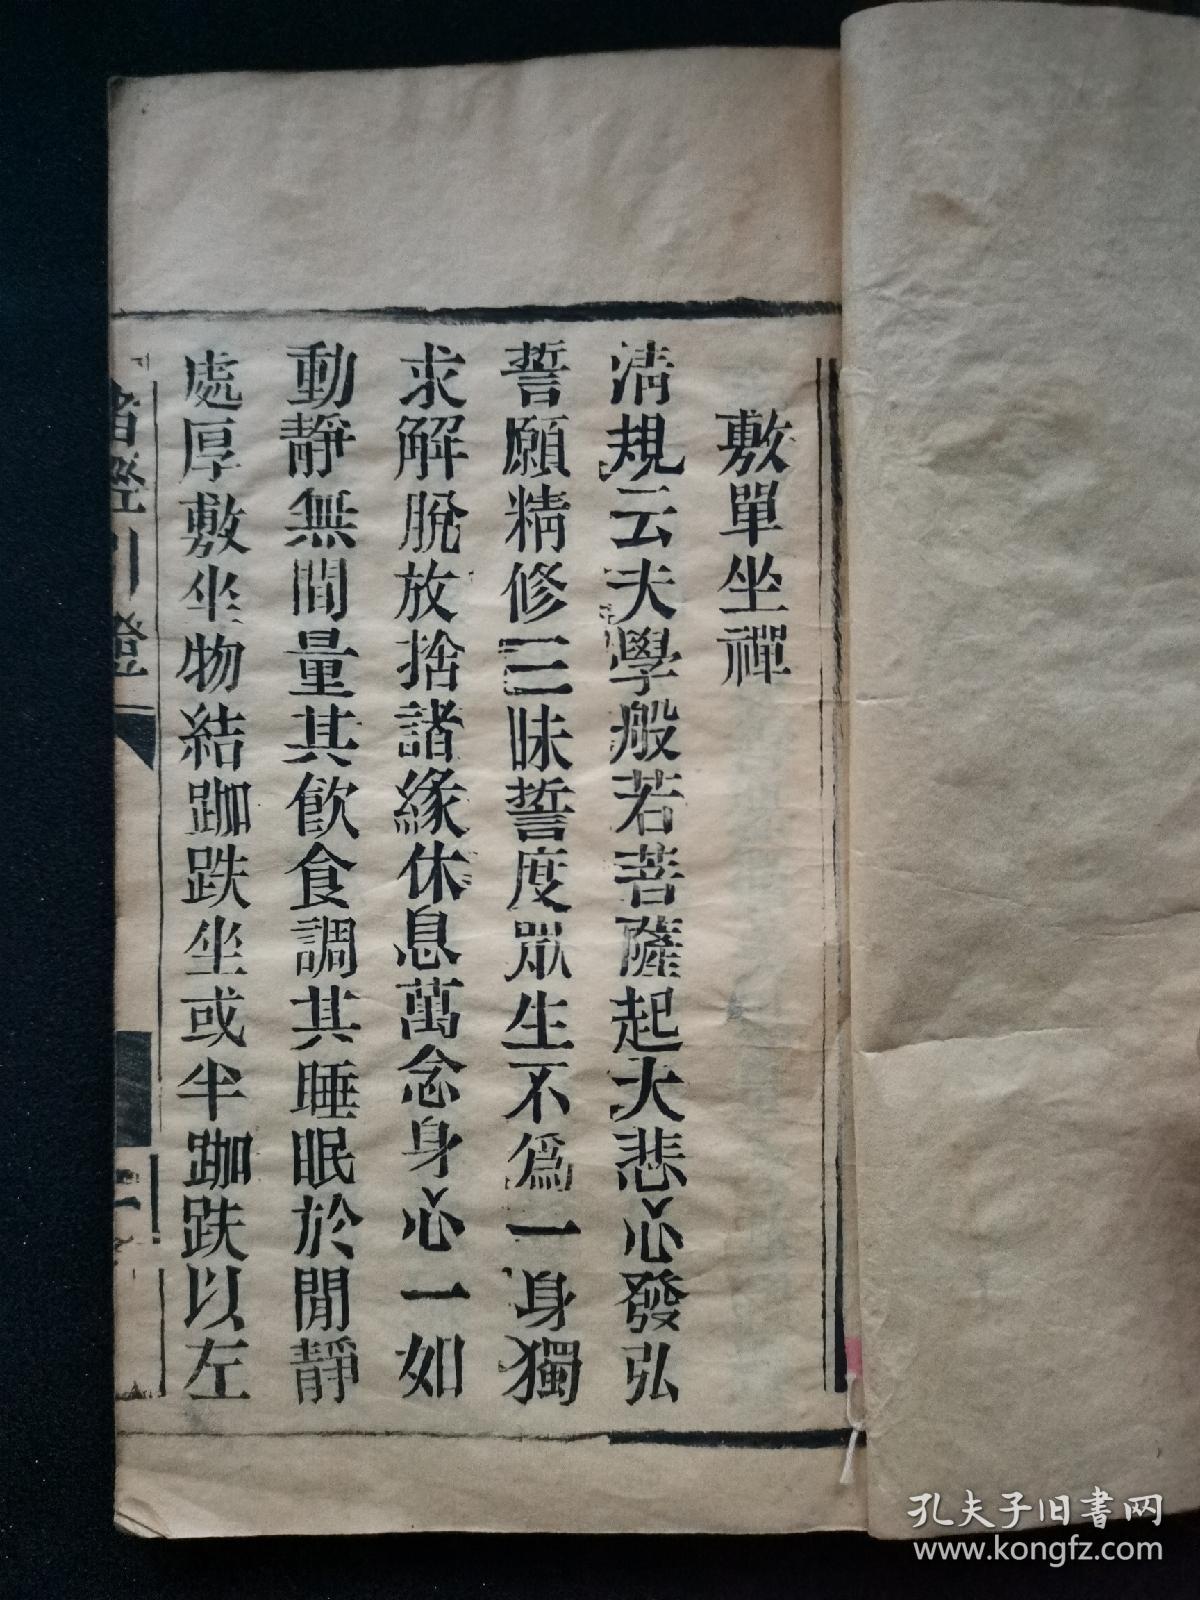 敷單坐禪
清規云夫學般若菩薩起大悲心發弘
誓願精修三昧誓度眾生不爲一身獨
求解脫放捨諸緣休息萬念身心一如
動靜無間量其飲食調其睡眠於閒靜
處厚敷坐物結跏趺坐或半跏趺以左
孔夫子旧书网
www.kongfz.com